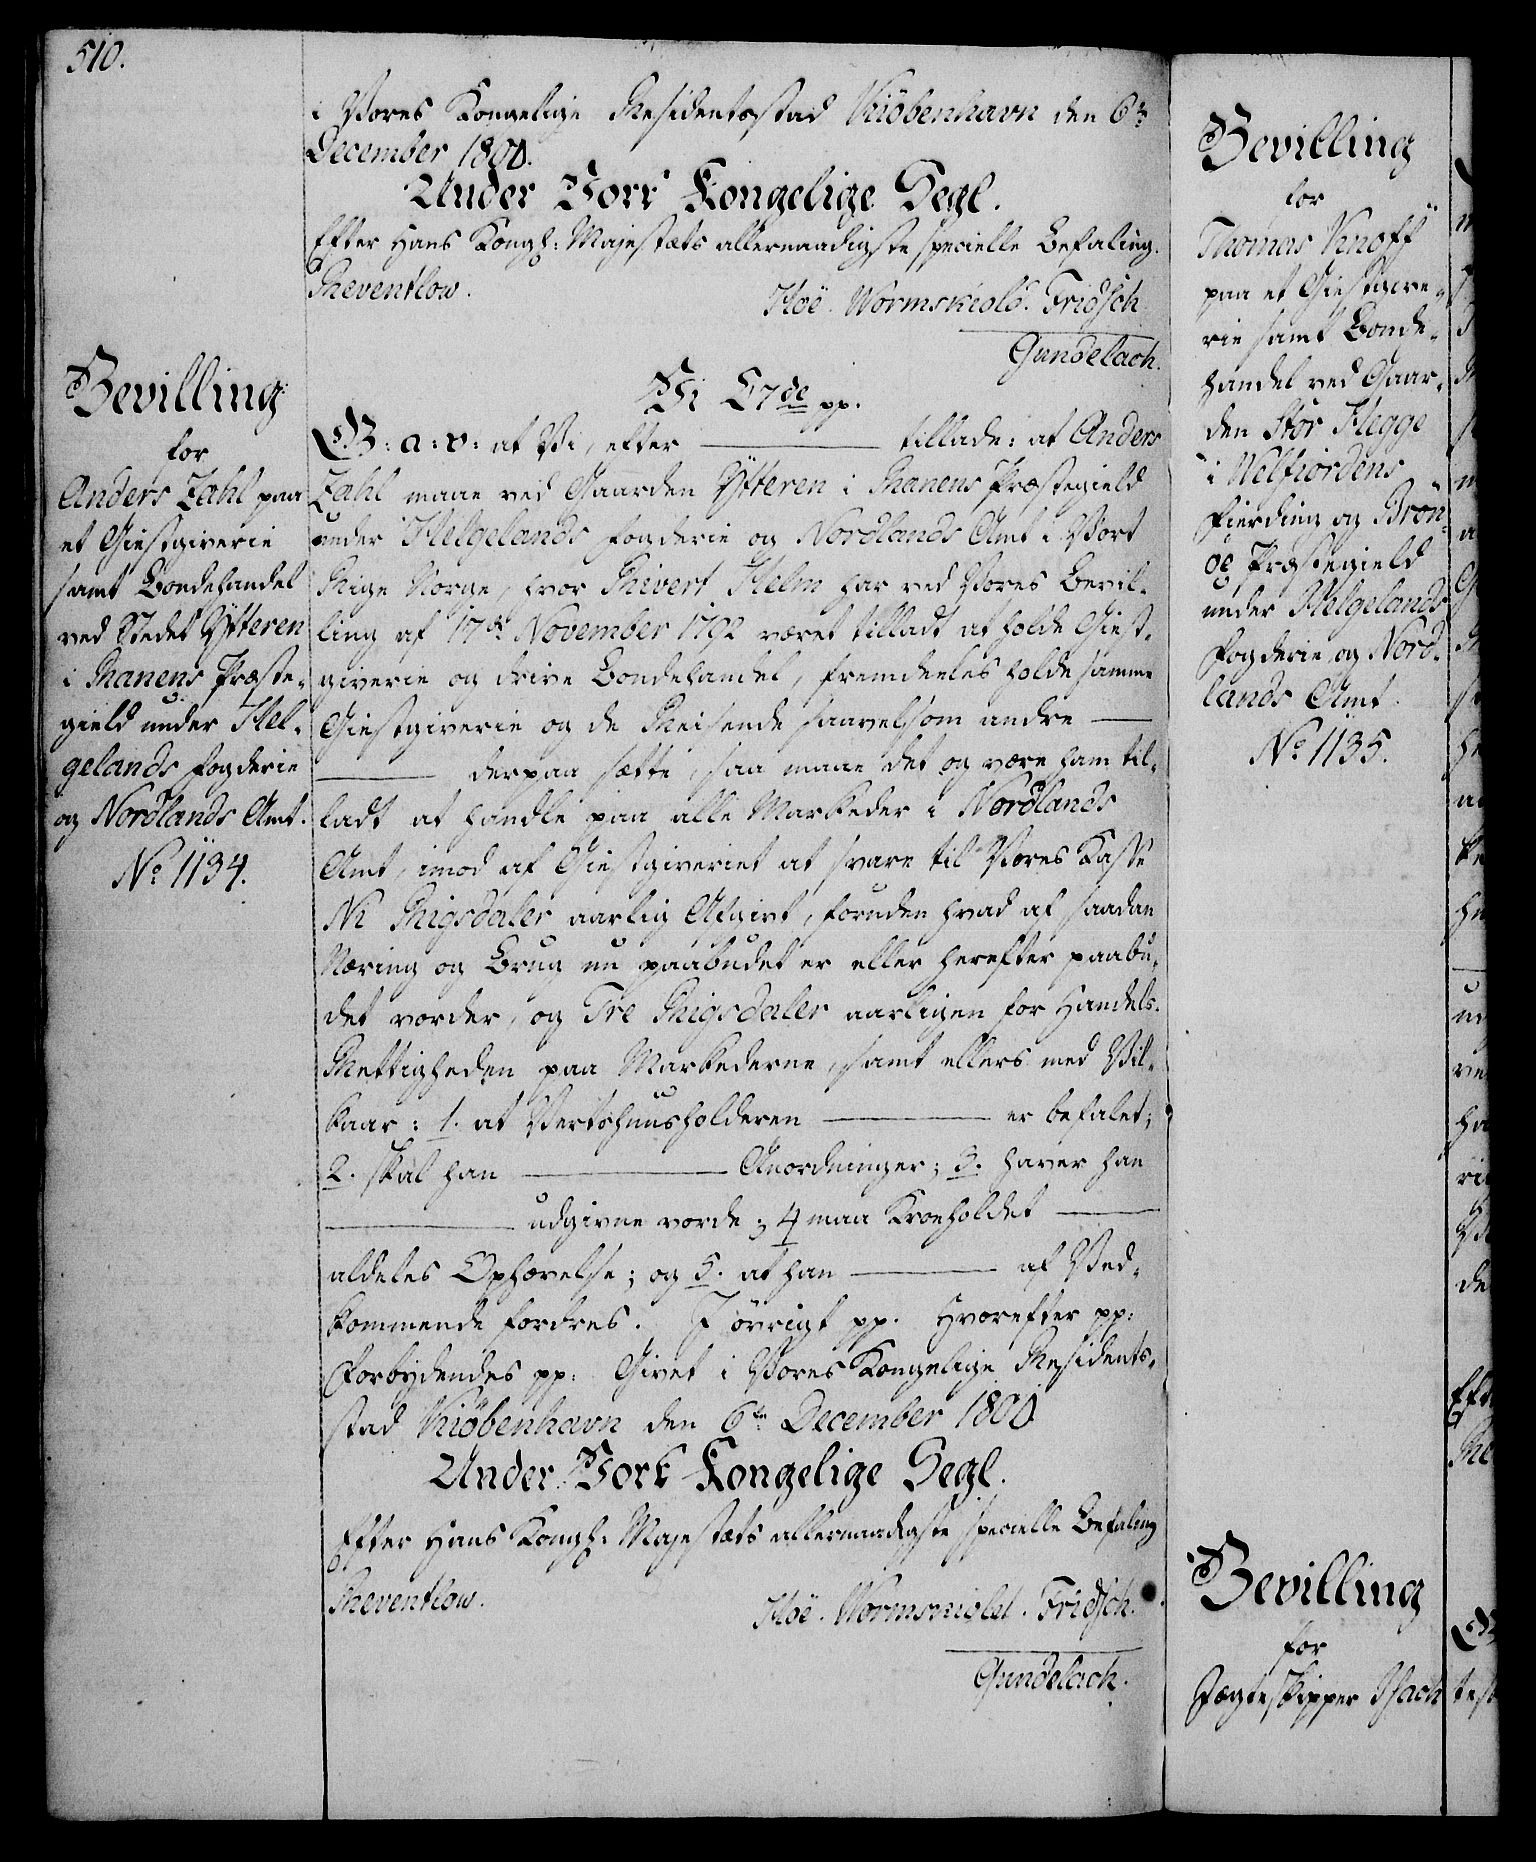 510.
i Vores Kongelige Residentzstad Kiöbenhavn den 6te
December 1800.
Under Vort Kongelige Segl.
Efter Hans Kongl: Majestæts allernaadigste specielle Befaling.
Reventlow.
Hoë. Wormskiold. Fridsch
Gundelach.
Bevilling
for
Anders Zahl paa
et Giestgiverie
samt Bondehandel
ved Stedet Ytteren
i Ranens Præste-
gield under Hel-
gelands Fogderie
og Nordlands Amt.
No 1134.
Vi C7de pp.
G: a: v: at Vi, efter ——— tillade: at Anders
Zahl maae ved Gaarden Ytteren i Ranens Præstegield
under Helgelands Fogderie og Nordlands Amt i Vort
Rige Norge, hvor Sivert Helm har ved Vores Bevil-
ling af 17de November 1792 været tilladt at holde Giest-
giverie og drive Bondehandel, fremdeeles holde samme
Giestgiverie og de Reisende saavelsom andre ———
——— derpaa sætte, saa maae det og være ham til-
ladt at handle paa alle Markeder i Nordlands
Amt, imod af Giestgiveriet at svare til Vores Kasse
Ni Rigsdaler aarlig Afgivt, foruden hvad af saadan
Næring og Brug nu paabudet er eller herefter paabu-
det vorder, og Tre Rigsdaler aarligen for Handels-
Rettigheden paa Markederne, samt ellers med Vil-
kaar: 1. at Vertshuusholderen ——— er befalet;
2. skal han ——— Anordninger; 3. haver han
——— udgivne vorde; 4 maa Kroeholdet ———
aldeles Ophævelse; og 5. at han ——— af Ved-
kommende fordres. I øvrigt pp. Hvorefter pp:
Forbydendes pp: Givet i Vores Kongelige Residents-
stad Kiöbenhavn den 6te December 1800
Under Vort Kongelige Segl.
Efter Hans Kongl: Majestæts allernaadigste specielle Befaling
Reventlow.
Hoë. Wormskiold. Fridsch.
Gundelach.
Bevilling
for
Thomas Knoff
paa et Giestgive-
rie samt Bonde-
handel ved Gaar-
den Stor Hegge
i Welfiordens
Fierding og Brön-
öe Præstegield
under Helgelands
Fogderie og Nord-
lands Amt.
No 1135.
Bevilling
for
Jægteskipper Isach